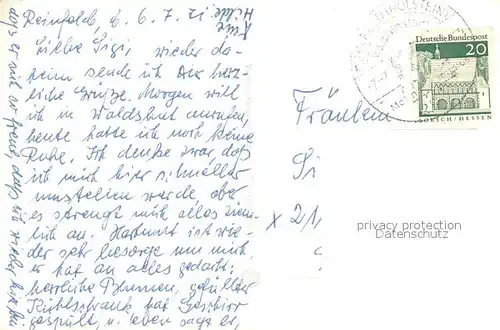 Reinfeld, d. 6. 7. 71
Liebe Gigi, wieder da-
heim sende ich Dir herz-
liche Grüße. Morgen will
ich in Waldshut anrufen,
heute hatte ich noch keine
Ruhe. Ich denke zwar, daß
ich mich hier schneller
umstellen werde, aber
es strengt mich alles ziem-
lich an. Hartmut ist wie-
der sehr besorgt um mich,
er hat an alles gedacht:
herrliche Blumen, gefüllter
Kühlschrank, hat Geschirr
gespült, u. eben sagte er,
daß er sich so freut, daß ich wieder hier
Hilde
Fräulein
21
(HOLSTEIN)
Deutsche Bundespost
20
LORSCH/HESSEN
privacy protection
Datenschutz